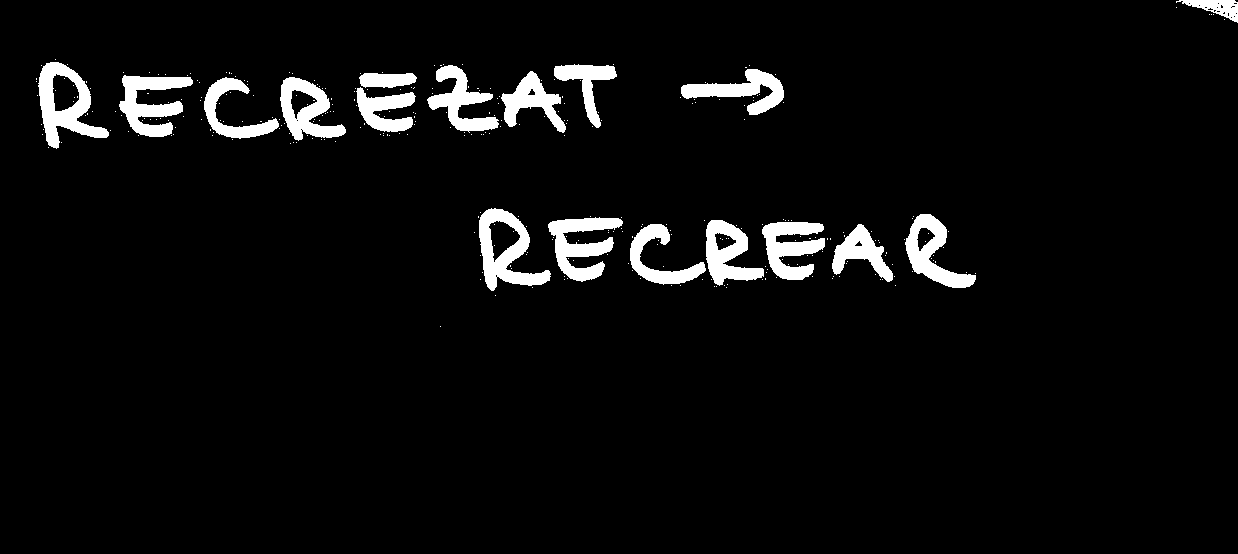 RECREZAT →
RECREAR